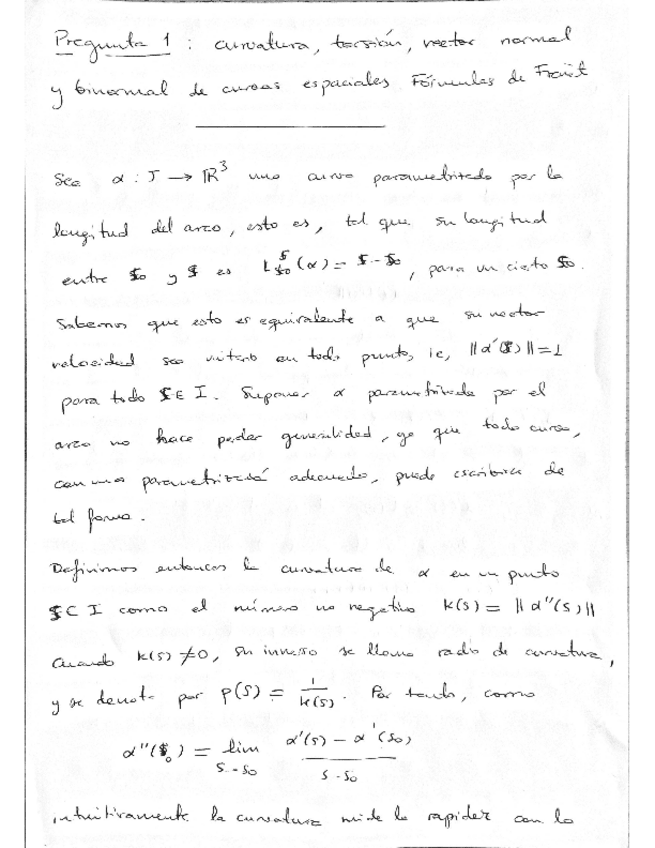 Pregunta 1 : curvatura, torsión, vector normal
y binormal de curvas espaciales Fórmulas de Frenêt
Sea α : I → ℝ³ una curva parametrizada por la
longitud del arco, esto es, tal que su longitud
entre s₀ y s es L_{s₀}^{s}(α) = s - s₀, para un cierto s₀.
Sabemos que esto es equivalente a que su vector
velocidad sea unitario en todo punto, ie, ||α'(s)|| = 1
para todo s ∈ I. Suponer α parametrizada por el
arco no hace perder generalidad, ya que toda curva,
con una parametrización adecuada, puede escribirse de
tal forma.
Definimos entonces la curvatura de α en un punto
s ∈ I como el número no negativo k(s) = ||α''(s)||
Cuando k(s) ≠ 0, su inverso se llama radio de curvatura,
y se denota por ρ(s) = 1/k(s). Por tanto, como
α''(s₀) = lim_{s-s₀} (α'(s) - α'(s₀))/(s - s₀)
intuitivamente la curvatura mide la rapidez con la